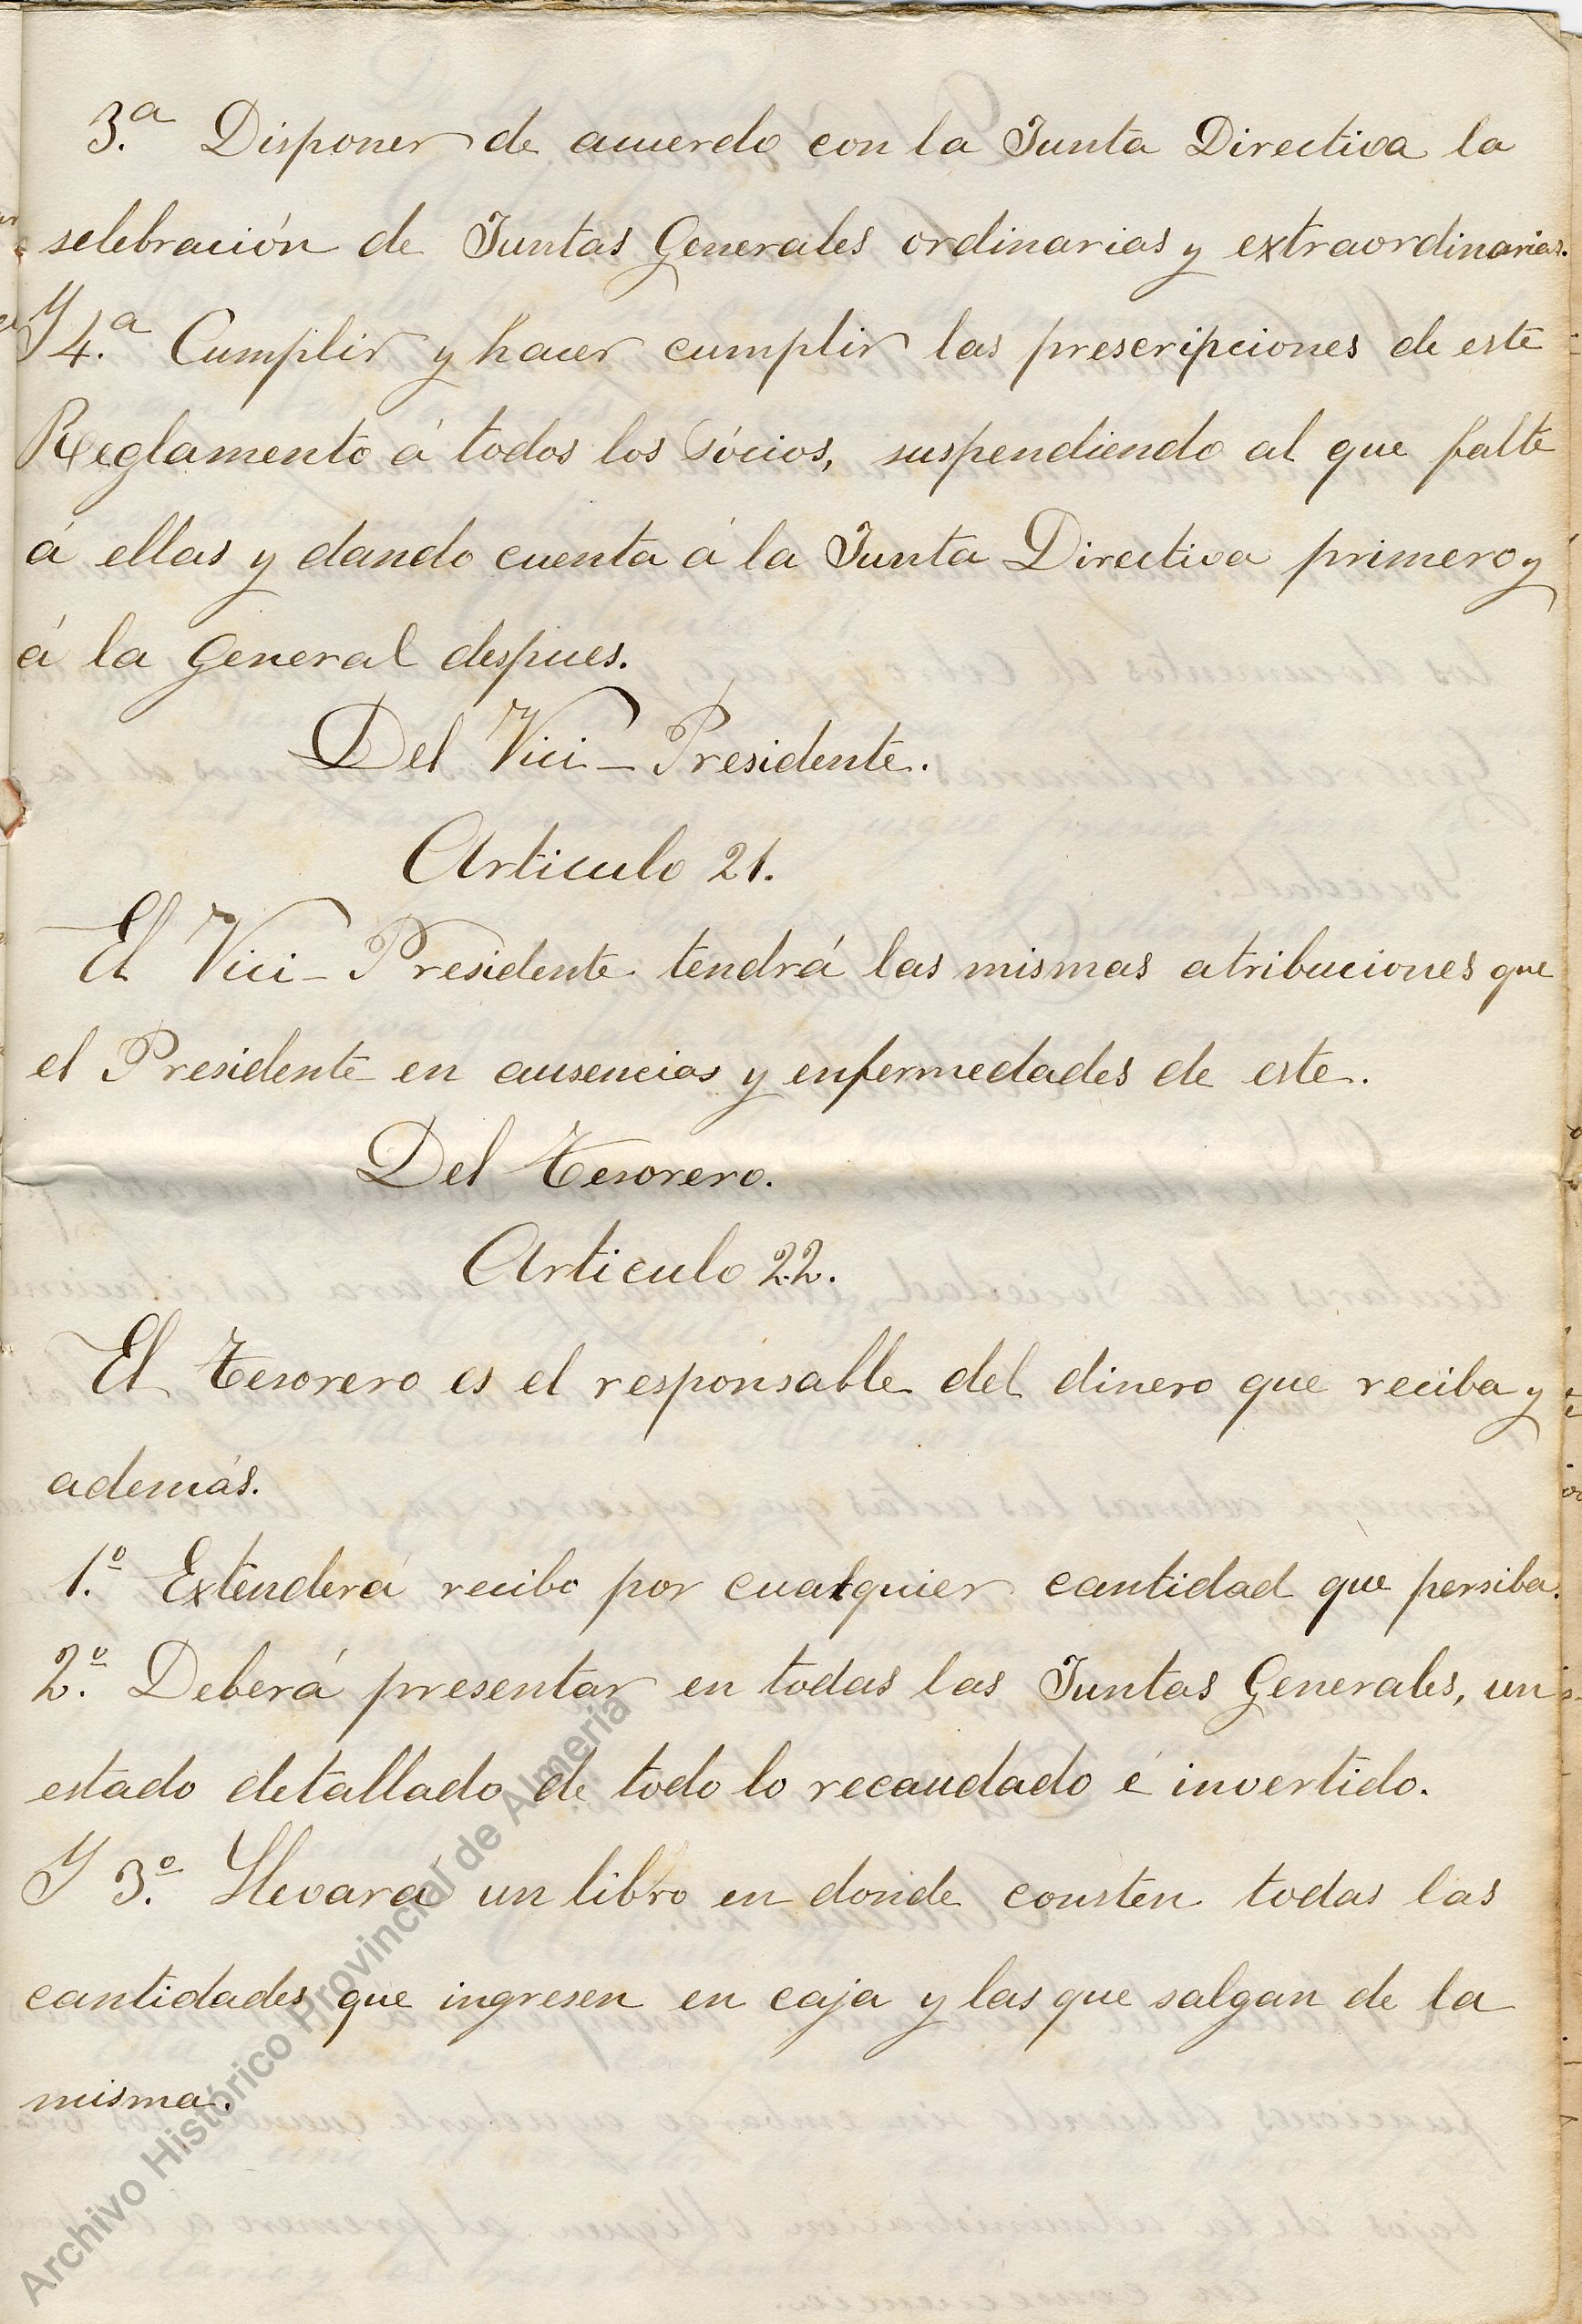 3.ª Disponer de acuerdo con la Junta Directiva la
selebración de Juntas Generales ordinarias y extraordinarias.
Y 4.ª Cumplir y hacer cumplir las prescripciones de este
Reglamento á todos los Sócios, suspendiendo al que falte
á ellas y dando cuenta á la Junta Directiva primero y
á la General despues.
Del Vici-Presidente.
Articulo 21.
El Vici-Presidente tendrá las mismas atribuciones que
el Presidente en ausencias y enfermedades de este.
Del Tesorero.
Articulo 22.
El Tesorero es el responsable del dinero que reciba y
además.
1.º Extenderá recibo por cualquier cantidad que persiba.
2.º Deberá presentar en todas las Juntas Generales, un
estado detallado de todo lo recaudado é invertido.
Y 3.º Llevará un libro en donde consten todas las
cantidades que ingresen en caja y las que salgan de la
misma.
Archivo Histórico Provincial de Almería